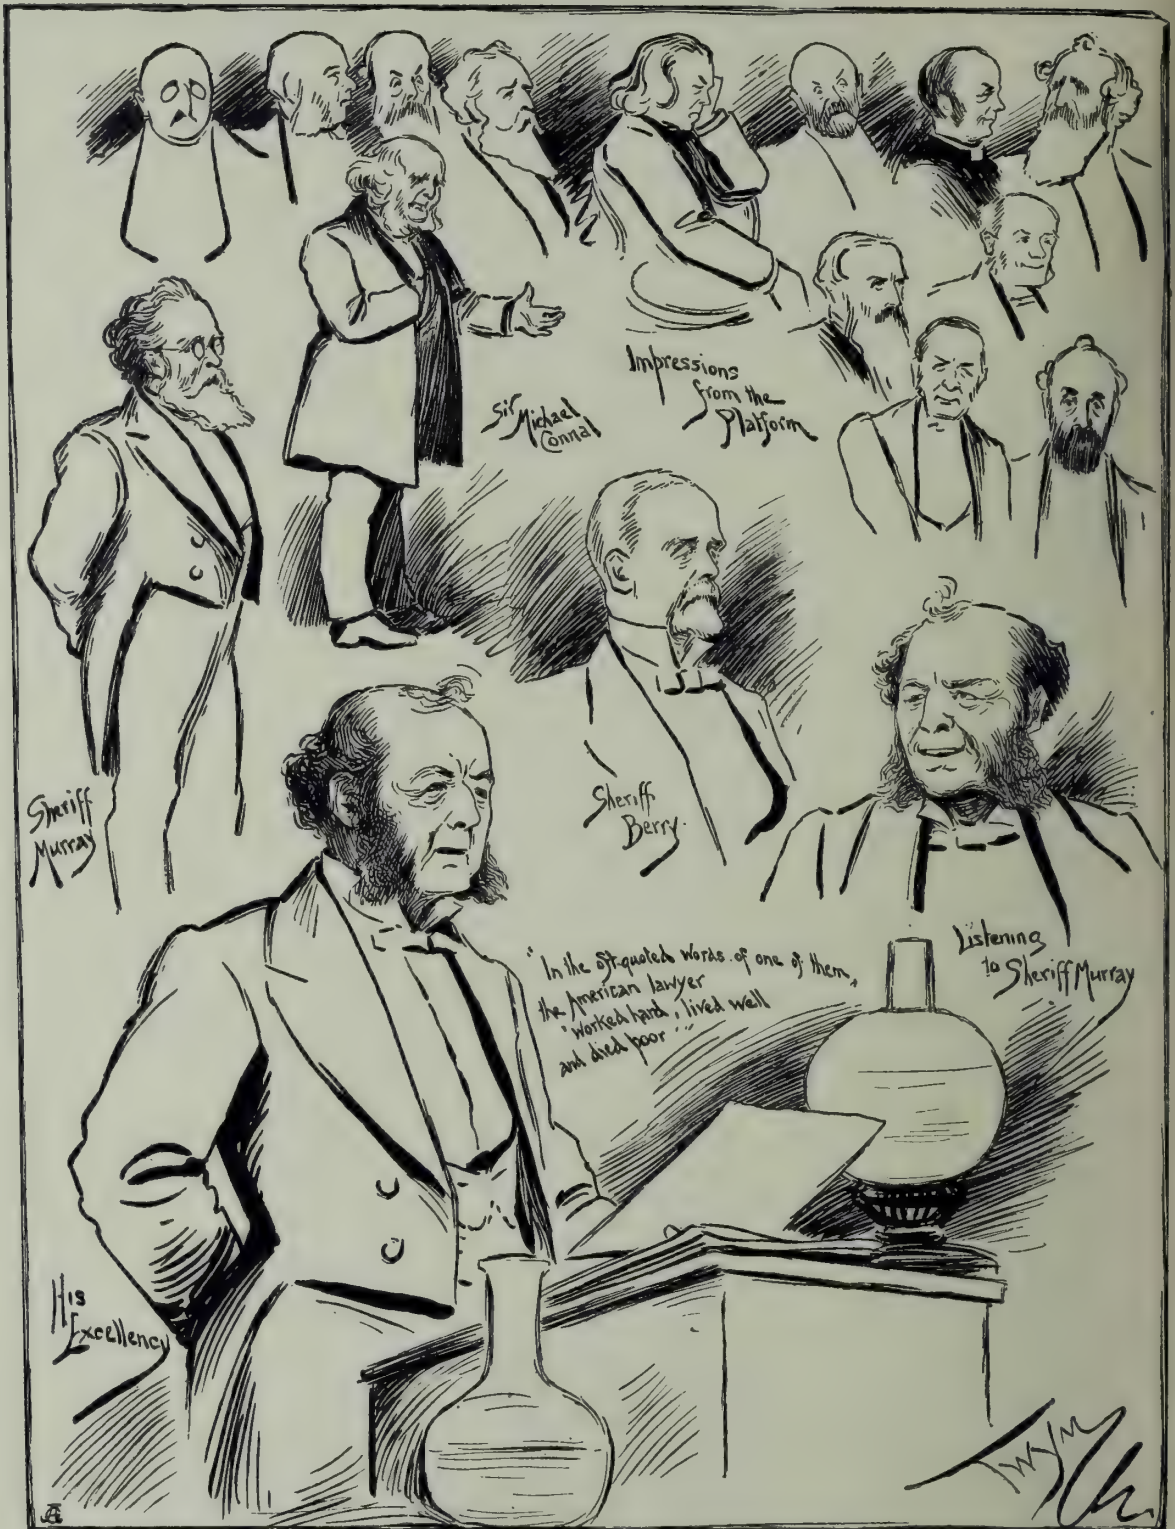 Sir
Michael
Connal
Impressions
from the
Platform
Sheriff
Murray
Sheriff
Berry.
Listening
to Sheriff Murray
"In the oft-quoted words of one of them,
the American lawyer
"worked hard, lived well
and died poor""
His
Excellency
Twym